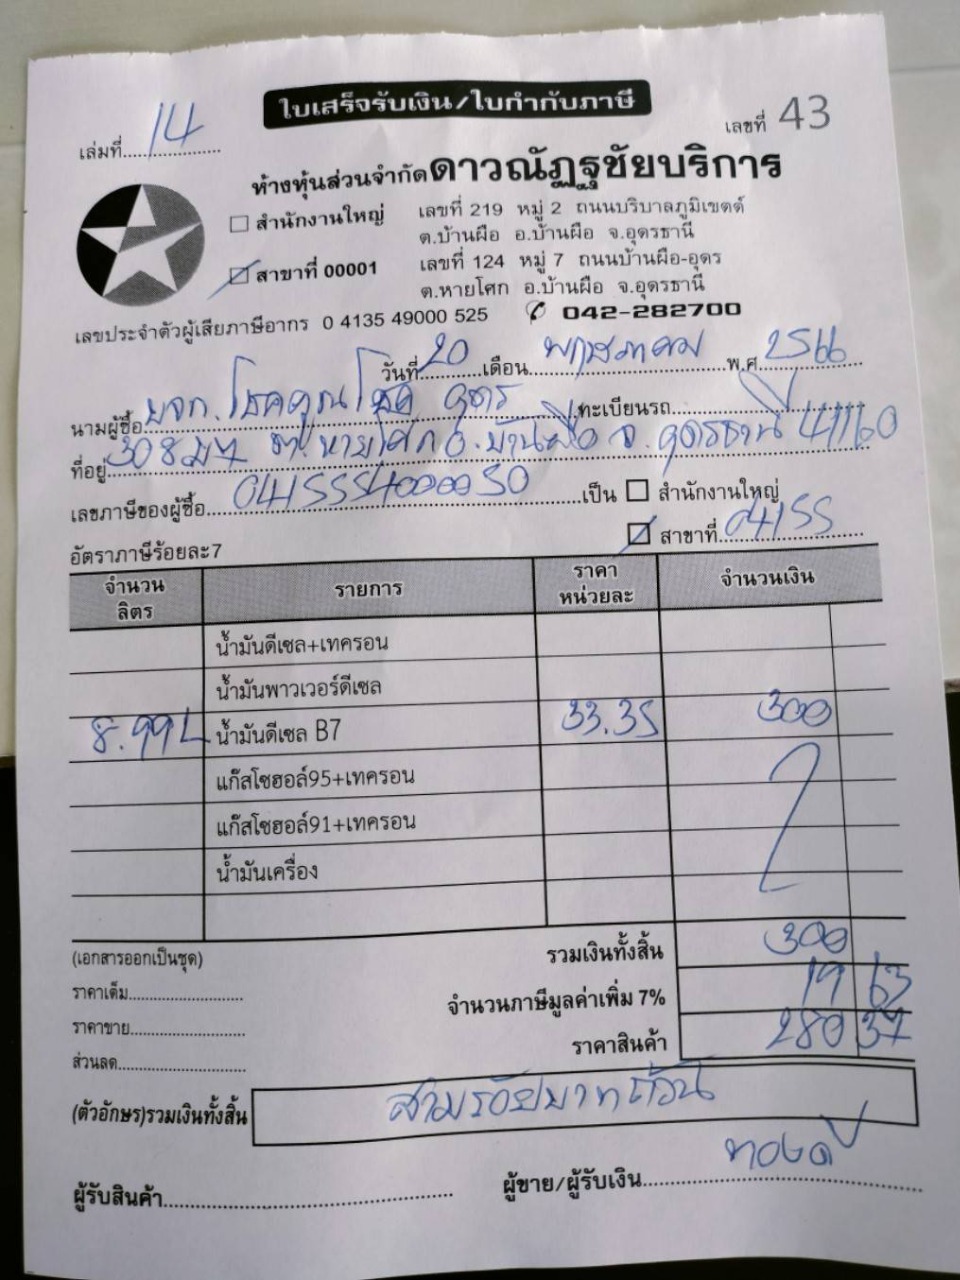 ใบเสร็จรับเงิน/ใบกำกับภาษี
เล่มที่ 14
เลขที่ 43
ห้างหุ้นส่วนจำกัดดาวณัฏฐชัยบริการ
☐ สำนักงานใหญ่ เลขที่ 219 หมู่ 2 ถนนบริบาลภูมิเขตต์
ต.บ้านผือ อ.บ้านผือ จ.อุดรธานี
☑ สาขาที่ 00001 เลขที่ 124 หมู่ 7 ถนนบ้านผือ-อุดร
ต.หายโศก อ.บ้านผือ จ.อุดรธานี
เลขประจำตัวผู้เสียภาษีอากร 0 4135 49000 525 ✆ 042-282700
วันที่ 20 เดือน พฤษภาคม พ.ศ. 2566
นามผู้ซื้อ บจก. โชคคูณโชค อุดร ทะเบียนรถ
ที่อยู่ 308 ม.7 ต. หายโศก อ. บ้านผือ จ. อุดรธานี 41160
เลขภาษีของผู้ซื้อ 0415554000050 เป็น ☐ สำนักงานใหญ่
☑ สาขาที่ 04155
อัตราภาษีร้อยละ7
จำนวนลิตร รายการ ราคาหน่วยละ จำนวนเงิน
น้ำมันดีเซล+เทครอน
น้ำมันพาวเวอร์ดีเซล
8.99 L น้ำมันดีเซล B7 33.35 300
แก๊สโซฮอล์95+เทครอน
แก๊สโซฮอล์91+เทครอน
น้ำมันเครื่อง
(เอกสารออกเป็นชุด) รวมเงินทั้งสิ้น 300
ราคาเต็ม จำนวนภาษีมูลค่าเพิ่ม 7% 19 63
ราคาขาย ราคาสินค้า 280 37
ส่วนลด
(ตัวอักษร)รวมเงินทั้งสิ้น สามร้อยบาทถ้วน
ผู้รับสินค้า ผู้ขาย/ผู้รับเงิน ทองดี